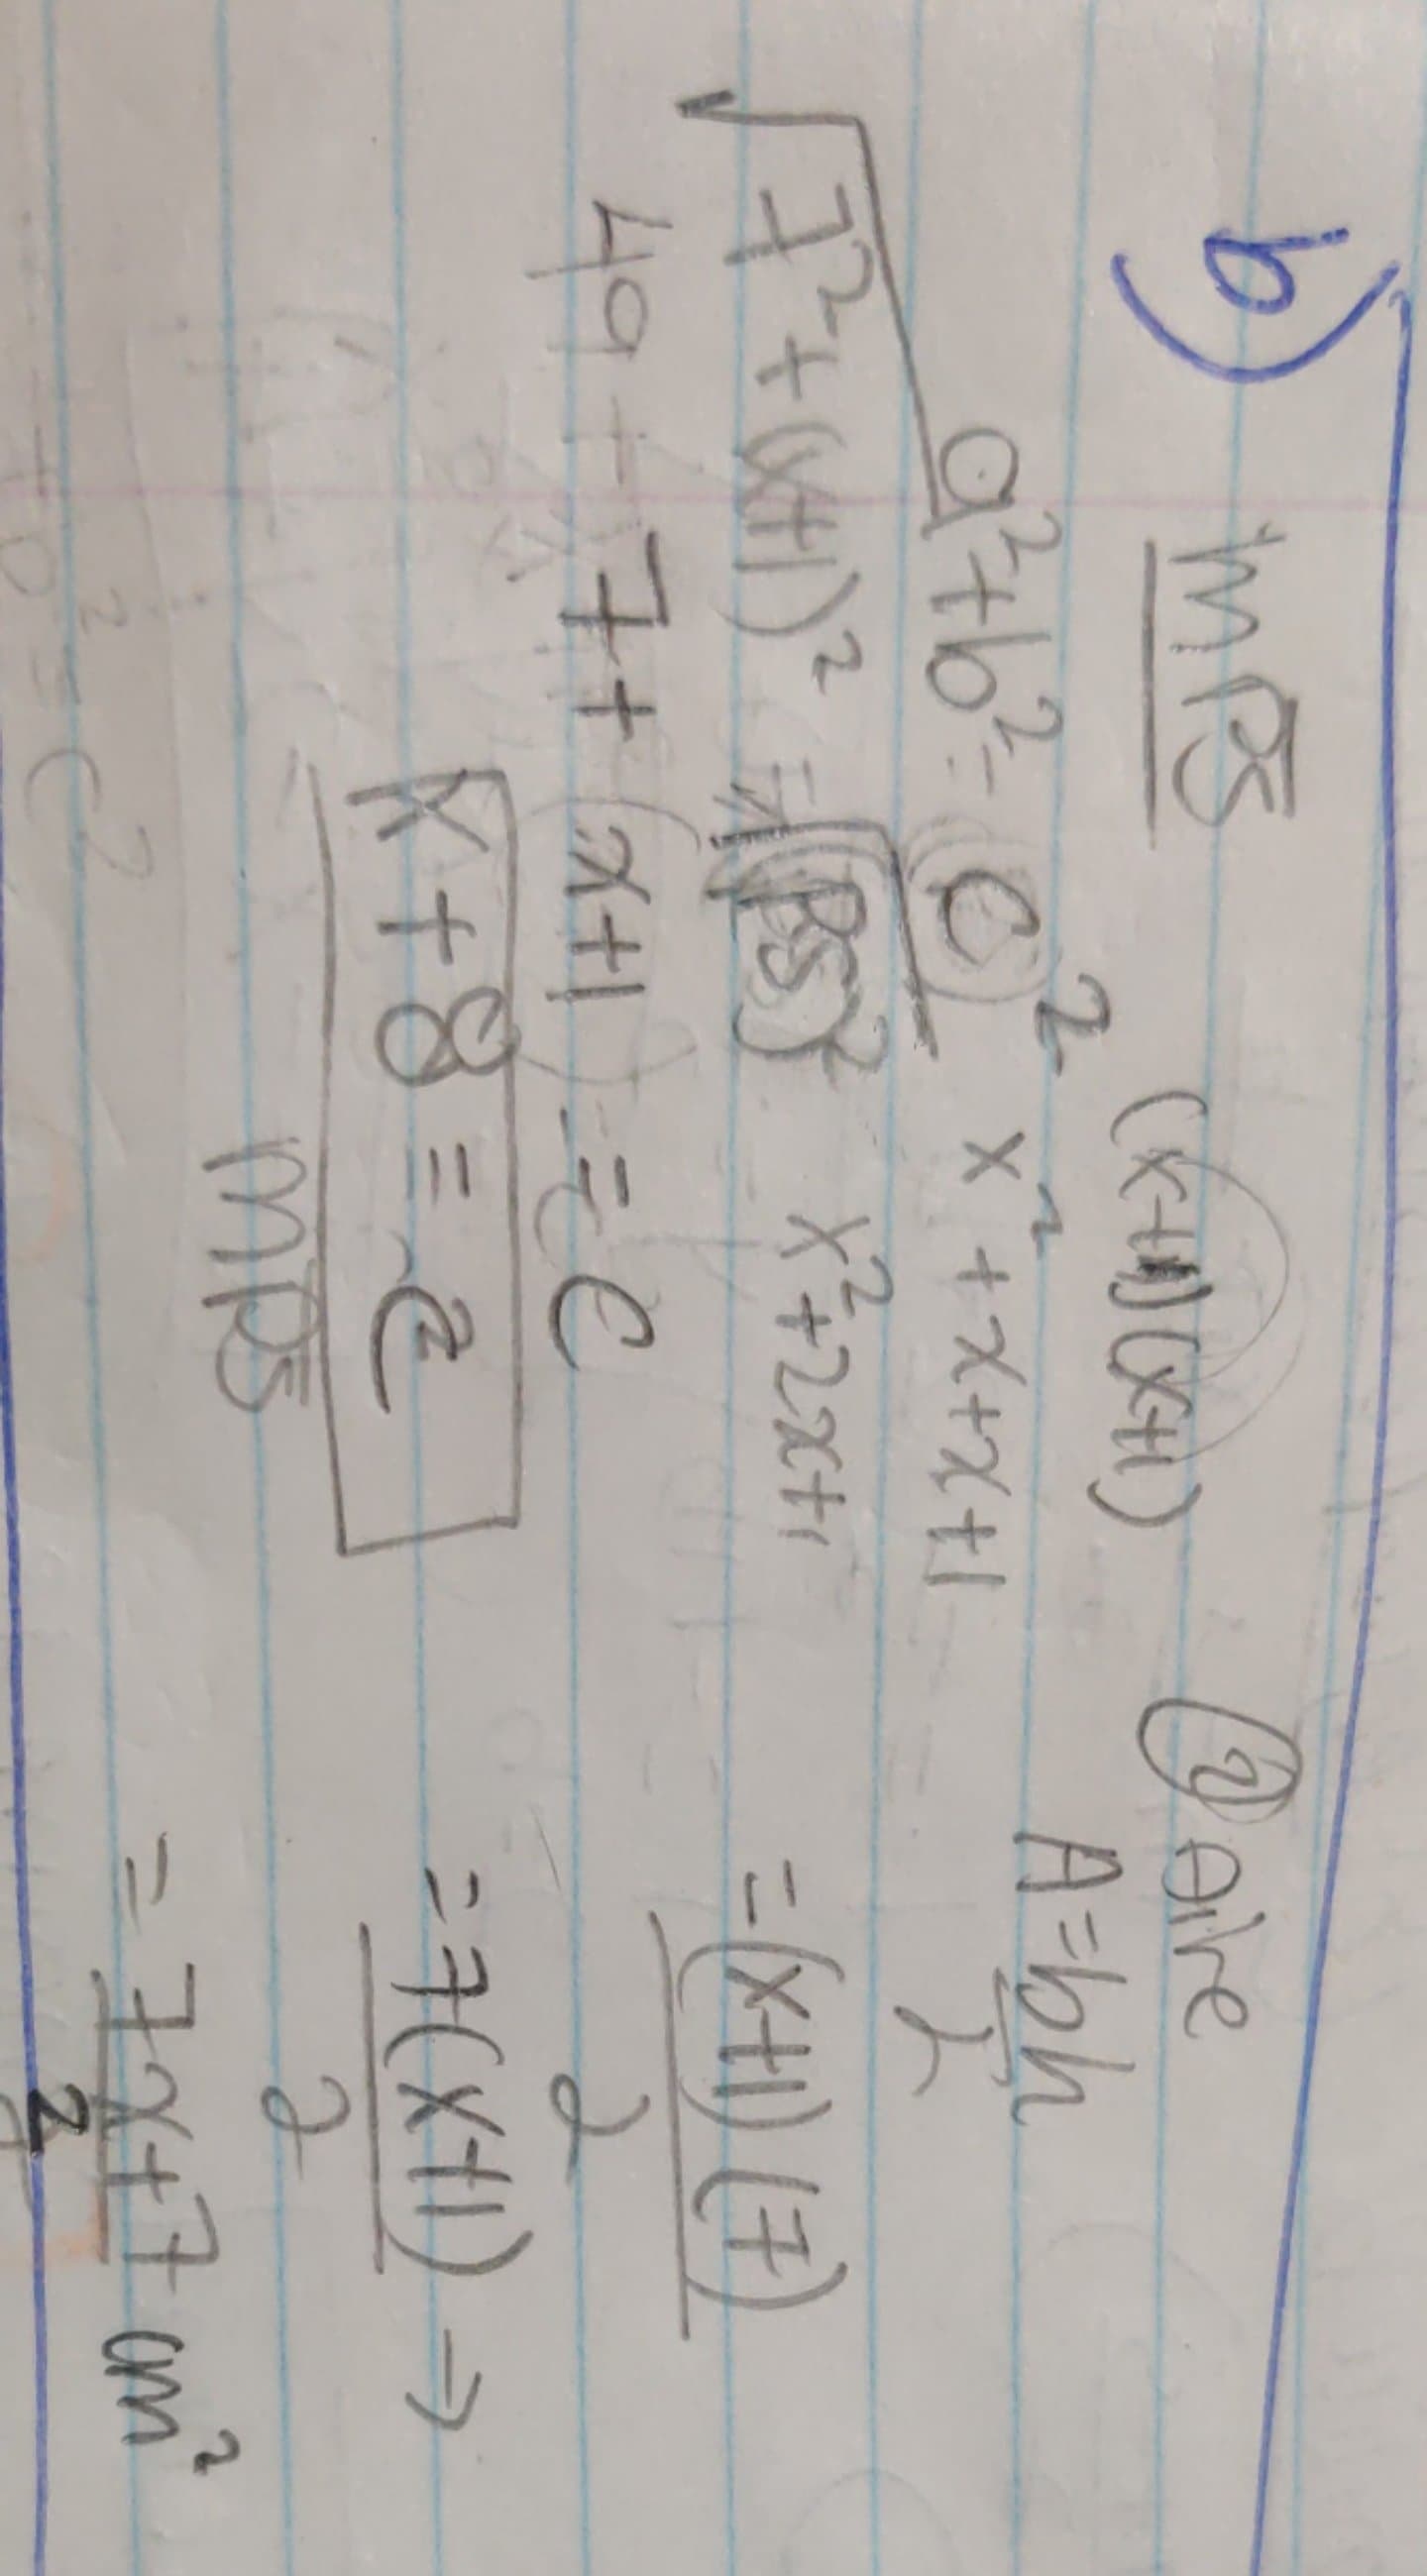 b)
m P̅S̅
a² + b² = c²
√7² + (x+1)² = √(PS)²
49 + 7 + x+1 = c
x + 8 = c
m P̅S̅
(x+1)(x+1)
x² + x + x + 1
x² + 2x + 1
② Aire
A = bh
2
= (x+1)(7)
2
= 7(x+1) →
2
= 7x+7 cm²
2